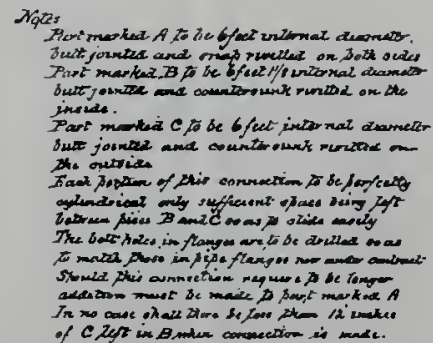 Notes
Part marked A to be 6 feet internal diameter.
butt jointed and snap rivetted on both sides
Part marked B to be 6 feet 1/8 internal diameter
butt jointed and countersunk rivetted on the
inside.
Part marked C to be 6 feet internal diameter
butt jointed and countersunk rivetted on
the outside
Each portion of this connection to be perfectly
cylindrical only sufficient space being left
between pieces B and C so as to slide easily
The bolt holes in flanges are to be drilled so as
to match those in pipe flanges now under contract
Should this connection require to be longer
addition must be made to part marked A
In no case shall there be less than 12 inches
of C left in B when connection is made.